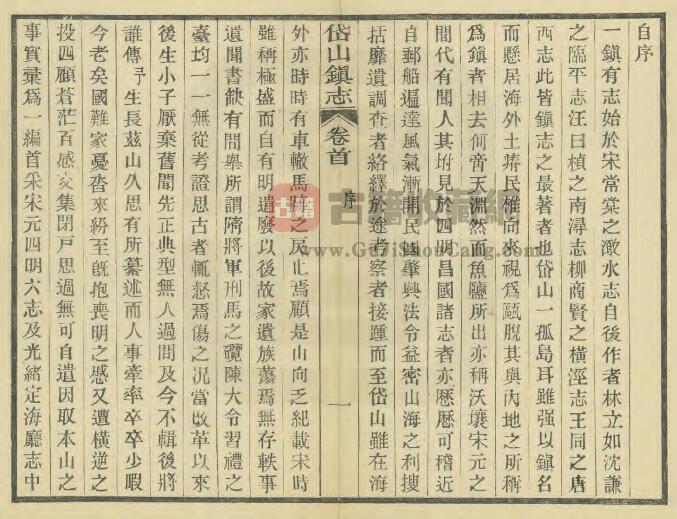 自序
一鎮有志始於宋常棠之澉水志自後作者林立如沈謙
之臨平志汪曰楨之南潯志柳商賢之橫涇志王同之唐
西志此皆鎮志之最著者也岱山一孤島耳雖强以鎮名
而懸居海外土瘠民椎向來視爲甌脫其與內地之所稱
爲鎮者相去何啻天淵然而魚鹽所出亦稱沃壤宋元之
間代有聞人其坿見於四明昌國諸志者亦歷歷可稽近
自郵船遍達風氣漸開民國肇興法令益密山海之利搜
括靡遺調查者絡繹於途考察者接踵而至岱山雖在海
岱山鎮志 卷首 序 一
外亦時時有車轍馬跡之戾止焉顧是山向乏紀載宋時
雖稱極盛而自有明遣廢以後故家遺族蕩焉無存軼事
遺聞書缺有間舉所謂隋將軍刑馬之壇陳大令習禮之
臺均一一無從考證思古者輒惄焉傷之况當改革以來
後生小子厭棄舊聞先正典型無人過問及今不輯後將
誰傳予生長茲山久思有所纂述而人事牽率卒卒少暇
今老矣國難家憂沓來紛至旣抱喪明之慼又遭橫逆之
投四顧蒼茫百感交集閉戶思過無可自遣因取本山之
事實彙爲一編首采宋元四明六志及光緒定海廳志中
古籍收藏网
www.GuJiShouCang.com
古籍